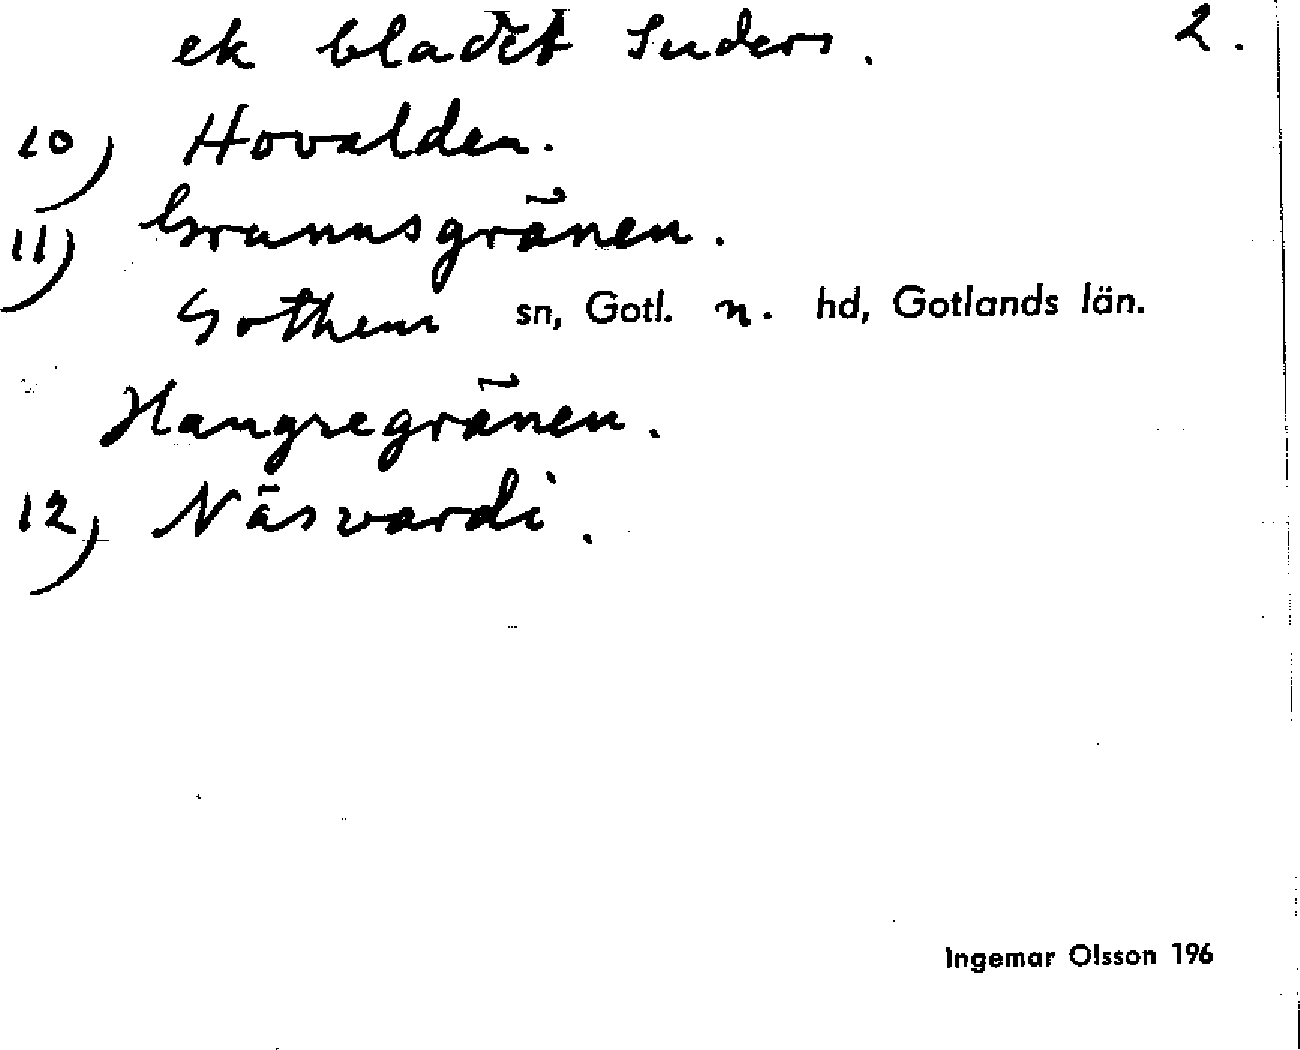 ek bladet Suders. 2.
10) Hovalden.
11) Grunnsgränen.
Gothem sn, Gotl. n. hd, Gotlands län.
Hangregränen.
12) Näsvardi.
Ingemar Olsson 196